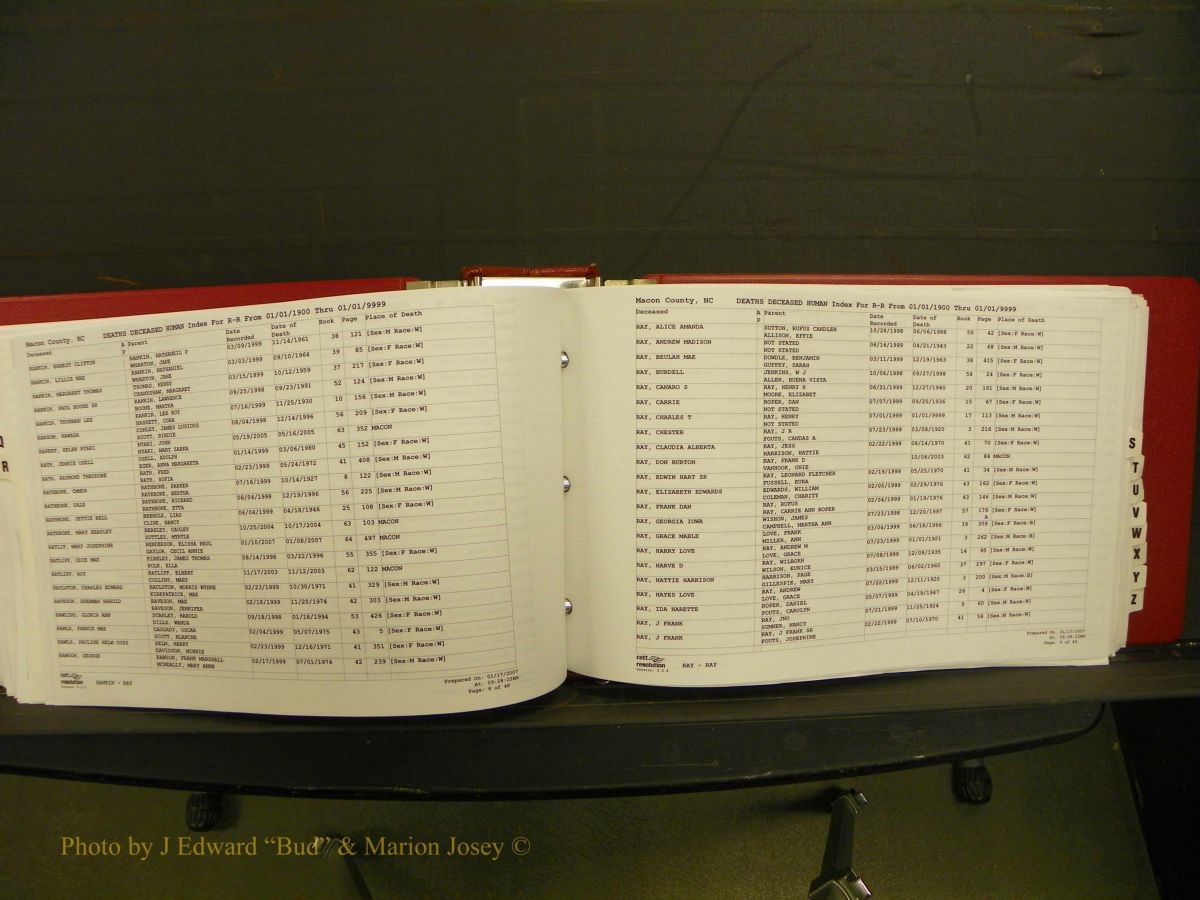 Macon County, NC DEATHS DECEASED HUMAN Index For R-R From 01/01/1900 Thru 01/01/9999
Deceased A Parent Date Recorded Date of Death Book Page Place of Death
P
RANKIN, ERNEST CLIFTON RANKIN, NATHANEIL P 03/09/1999 11/14/1961 38 121 [Sex:M Race:W]
WHARTON, JANE
RANKIN, LILLIE MAE RANKIN, NATHANIEL 03/03/1999 09/10/1964 39 85 [Sex:F Race:W]
WHARTON, JANE
RANKIN, MARGARET THOMAS THOMAS, HENRY 03/15/1999 10/12/1959 37 217 [Sex:F Race:W]
CRANKSHAW, MARGARET
RANKIN, PAUL BOONE SR RANKIN, LAWRENCE 09/25/1998 09/23/1991 52 124 [Sex:M Race:W]
BOONE, MARTHA
RANKIN, THURMAN LEE RANKIN, LEE ROY 07/16/1999 11/25/1930 10 156 [Sex:M Race:W]
HASKETT, CORA
RANSOM, NAWASA CONLEY, JAMES LUSIOUS 08/04/1998 12/14/1996 56 209 [Sex:F Race:W]
SCOTT, BIRDIE
RAPERT, HELEN NYARI NYARI, JOHN 05/19/2005 05/16/2005 63 352 MACON
NYARI, MARY ZARKA
RATH, JENNIE OSELL OSELL, ADOLPH 01/14/1999 03/06/1980 45 152 [Sex:F Race:W]
EGER, ANNA MARGARETA
RATH, RAYMOND THEODORE RATH, FRED 02/23/1999 05/24/1972 41 408 [Sex:M Race:W]
RATH, SOFIA
RATHBONE, RATHBONE, PARKER 07/16/1999 10/14/1927 8 122 [Sex:M Race:W]
RATHBONE, BERTHA
RATHBONE, DALE RATHBONE, RICHARD 08/04/1998 12/19/1996 56 225 [Sex:M Race:W]
RATHBONE, ETTA
RATHBONE, JETTIE BELL BRENDLE, LIAS 06/04/1999 04/18/1946 25 108 [Sex:F Race:W]
CLINE, NANCY
RATHBONE, MARY BEASLEY BEASLEY, CAULEY 10/25/2004 10/17/2004 63 103 MACON
SUTTLES, MYRTLE
RATLIFF, MARY JOSEPHINE HENDERSON, ELISHA PAUL 01/10/2007 01/08/2007 64 497 MACON
GAYLOR, CECIL ANNIE
RATLIFF, ODIE MAE KIRKLEY, JAMES THOMAS 08/14/1998 03/22/1996 55 355 [Sex:F Race:W]
POLK, ELLA
RATLIFF, ROY RATLIFF, ELBERT 11/17/2003 11/12/2003 62 122 MACON
COLLINS, MARY
RAULSTON, CHARLES EDWARD RAULSTON, MORRIS WYNNE 02/23/1999 10/30/1971 41 329 [Sex:M Race:W]
KIRKPATRICK, MAE
RAVESON, SHERMAN HAROLD RAVESON, MAX 02/18/1999 11/20/1974 42 303 [Sex:M Race:W]
RAVESON, JENNIFER
RAWLINS, GLORIA ANN STANLEY, HAROLD 09/18/1998 01/18/1994 53 426 [Sex:F Race:W]
DILLS, WANDA
RAWLS, FANNIE MAE CASSADY, OSCAR 02/04/1999 05/07/1975 43 5 [Sex:F Race:W]
SCOTT, BLANCHE
RAWLS, PAULINE HELM CORS HELM, HARRY 02/23/1999 12/16/1971 41 351 [Sex:F Race:W]
DAVIDSON, MINNIE
RAWSON, GEORGE RAWSON, FRANK MARSHALL 02/17/1999 07/01/1974 42 239 [Sex:M Race:W]
MCNEALLY, MARY ANNE
cott resolution
RANKIN - RAY
Prepared On: 01/17/2007
At: 09:28:22AM
Page: 8 of 48
Macon County, NC DEATHS DECEASED HUMAN Index For R-R From 01/01/1900 Thru 01/01/9999
Deceased A Parent Date Recorded Date of Death Book Page Place of Death
P
RAY, ALICE AMANDA SUTTON, RUFUS CANDLER 10/28/1998 06/06/1988 50 42 [Sex:F Race:W]
ALLISON, EFFIE
RAY, ANDREW MADISON NOT STATED 06/16/1999 04/21/1943 22 68 [Sex:M Race:W]
NOT STATED
RAY, BEULAH MAE DOWDLE, BENJAMIN 03/11/1999 12/19/1963 38 415 [Sex:F Race:W]
GUFFEY, SARAH
RAY, BURDELL JENKINS, W J 10/06/1998 09/27/1998 58 24 [Sex:F Race:W]
ALLEN, BUENA VISTA
RAY, CANARO S RAY, HENRY H 06/21/1999 12/27/1940 20 161 [Sex:M Race:W]
MOORE, ELIZABET
RAY, CARRIE ROPER, DAN 07/07/1999 09/25/1936 15 67 [Sex:F Race:W]
NOT STATED
RAY, CHARLES T RAY, HENRY 07/01/1999 01/01/9999 17 113 [Sex:M Race:W]
NOT STATED
RAY, CHESTER RAY, J R 07/23/1999 03/08/1920 3 216 [Sex:M Race:W]
FOUTS, CANDAS A
RAY, CLAUDIA ALBERTA RAY, JESS 02/22/1999 08/14/1970 41 70 [Sex:F Race:W]
HARRISON, HATTIE
RAY, DON BURTON RAY, FRANK D 10/06/2003 62 84 MACON
VANHOOK, ONIE
RAY, EDWIN HART SR RAY, LEONARD FLETCHER 02/19/1999 05/25/1970 41 34 [Sex:M Race:W]
FUSSELL, EURA
RAY, ELIZABETH EDWARDS EDWARDS, WILLIAM 02/05/1999 02/29/1976 43 162 [Sex:F Race:W]
COLEMAN, CHARITY
RAY, FRANK DAN RAY, RUFUS 02/04/1999 01/19/1976 43 146 [Sex:M Race:W]
RAY, CARRIE ANN ROPER
RAY, GEORGIA IOWA WISHON, JAMES 07/23/1998 12/20/1997 57 179 [Sex:F Race:W]
CAMPBELL, MARTHA ANN A
RAY, GRACE MABLE LOVE, FRANK 03/04/1999 06/18/1966 39 309 [Sex:F Race:B]
MILLER, ANN
RAY, HARRY LOVE RAY, ANDREW M 07/23/1999 01/01/1921 3 262 [Sex:M Race:B]
LOVE, GRACE
RAY, HARVE D RAY, WILBORN 07/08/1999 12/08/1935 14 95 [Sex:M Race:W]
WILSON, EUNICE
RAY, HATTIE HARRISON HARRISON, PAGE 03/15/1999 06/02/1960 37 297 [Sex:F Race:W]
GILLESPIE, MARY
RAY, HAYES LOVE RAY, ANDREW 07/22/1999 12/11/1920 3 200 [Sex:M Race:B]
LOVE, GRACE
RAY, IDA HARETTE ROPER, DANIEL 05/07/1999 04/19/1947 26 4 [Sex:F Race:W]
FOUTS, CAROLYN
RAY, J FRANK RAY, JNO 07/21/1999 11/25/1924 5 60 [Sex:M Race:W]
SUMNER, NANCY
RAY, J FRANK RAY, J FRANK SR 02/22/1999 07/10/1970 41 58 [Sex:M Race:W]
FOUTS, JOSEPHINE
cott resolution
RAY - RAY
Prepared On: 01/17/2007
At: 09:28:22AM
Page: 9 of 48
R
S
T
U
V
W
X
Y
Z
Photo by J Edward “Bud” & Marion Josey ©